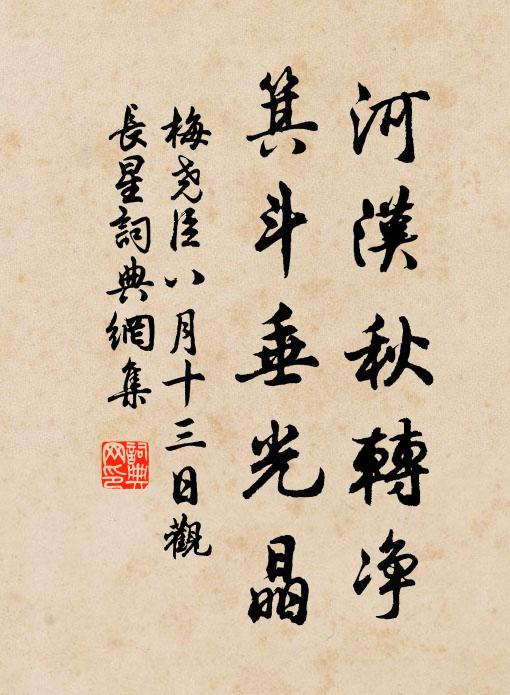 河漢秋轉净
箕斗垂光晶
梅堯臣八月十三日觀
長星詞典網集
詞典網印